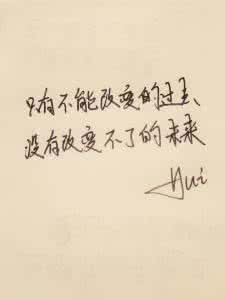 只有不能改变的过去、
没有改变不了的未来
Yui